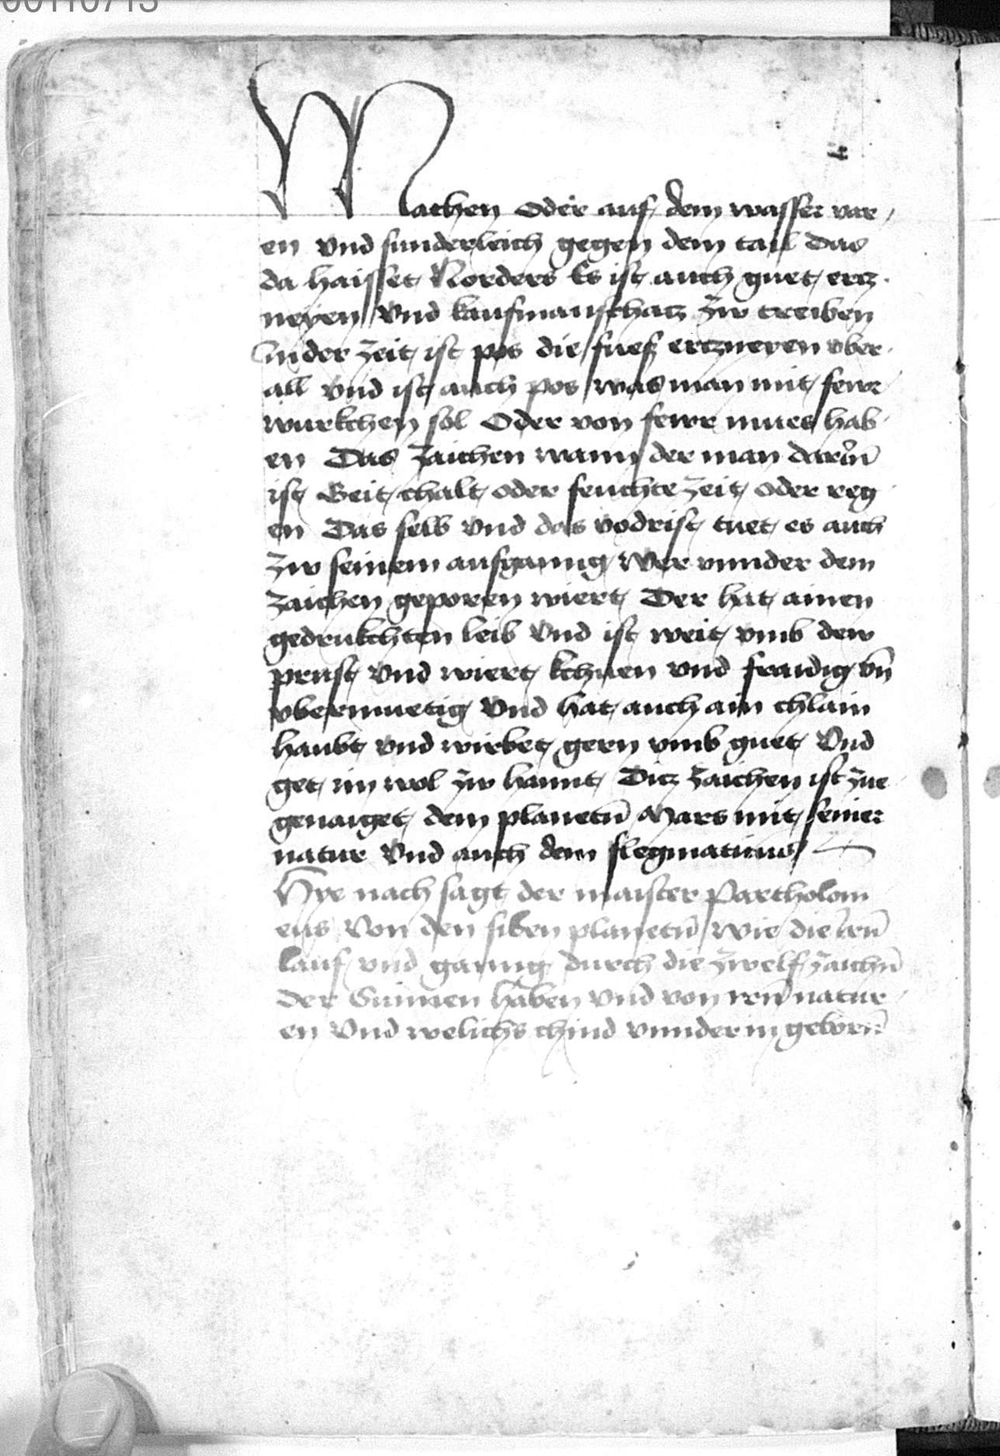 00110713
Machen Oder auf dem wasser var
en vnd sunderleich gegen dem tail Das
da haisset Norders Es ist auch guet ercz
neyen vnd kaufmanschacz zw treiben
In der zeit ist pos die fues ercznewen vber
all vnd ist auch pos was man mit fewr
wurkchen sol Oder von fewr mues hab
en Das zaichen wann der man darin̄
ist Geit chalt oder feuchte zeit oder reg
en Das selb vnd das vodrist tuet es auch
zw seinem aufganng Wer vnnder dem
zaichen geporen wiert Der hat ainen
gedrukchten leib Vnd ist weit vmb dew
prust Vnd wiert kchuen vnd fraidig vn̄
vbermuetig Vnd hat auch ain chlain
haubt vnd wirbet gern vmb guet Vnd
get im wol zw hannt Ditz zaichen ist zue
genaiget dem planetn̄ Mars mit seiner
natur Vnd auch dem flegmaticus
Hye nach sagt der maister Partholom
eus Von den siben planetn̄ Wie die irn̄
lauf vnd ganng durch die zwelf zaichn̄
Der Sunnen haben vnd von irn̄ natur
en Vnd welichs chind vnnder in geborn̄